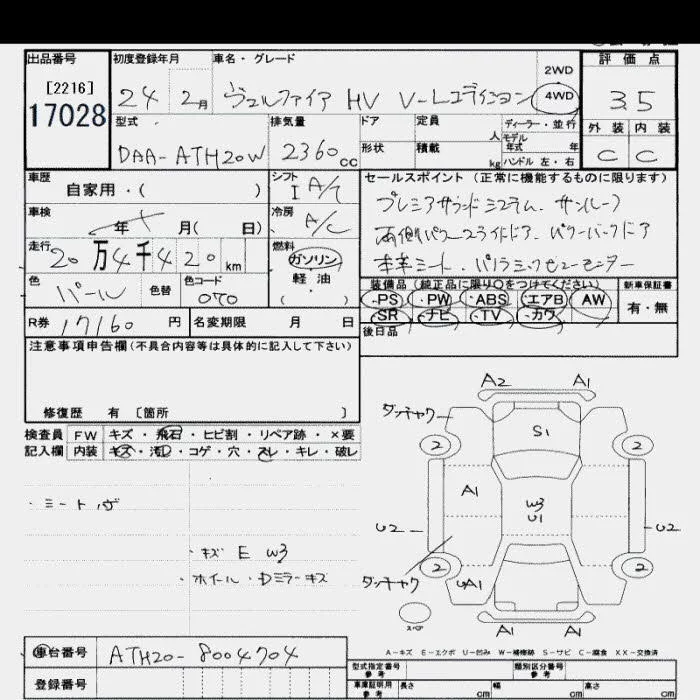 出品番号 初度登録年月 車名・グレード 評価点
[2216]
17028
24 2月 ヴェルファイア HV V-Lエディション 2WD 4WD 3.5
型式 排気量 ドア 定員 ディーラー・並行 外装 内装
人 モデル年式 年
DAA-ATH20W 2360cc 形状 積載 kg ハンドル 左・右 C C
車歴 シフト セールスポイント(正常に機能するものに限ります)
自家用・( ) I A/T
プレミアサウンドシステム、サンルーフ
車検 冷房
年 月( 日) A/C
両側パワースライドドア、パワーバックドア
走行 燃料
20万4千420km ガソリン
本革シート・パノラミックビューモニター
軽油
( )
色 色替 色コード 装備品(純正品に限り○をつけてください) 新車保証書
パール 070 ・PS ・PW ・ABS エアB AW 有・無
R券 17160円 名変期限 月 日 SR ・ナビ ・TV ・カワ
後日品
注意事項申告欄(不具合内容等は具体的に記入して下さい)
修復歴 有 〔箇所 〕
検査員 FW キズ・飛石・ヒビ割・リペア跡・×要
記入欄 内装 キズ・汚レ・コゲ・穴・スレ・キレ・破レ
A2 A1
ダンチャク
2 S1 2
A1
W3
U1
U2 U2
2 2
ダンチャク
UA1
スペア
A1 A1
・シート
・キズ E W3
・ホイール・Dミラーキズ
A-キズ E-エクボ U-凹み W-補修跡 S-サビ C-腐食 XX-交換済
車台番号 ATH20-8004704
型式指定番号 参考 類別区分番号 参考
登録番号
車庫証明用 参考 長さ cm 幅 cm 高さ cm